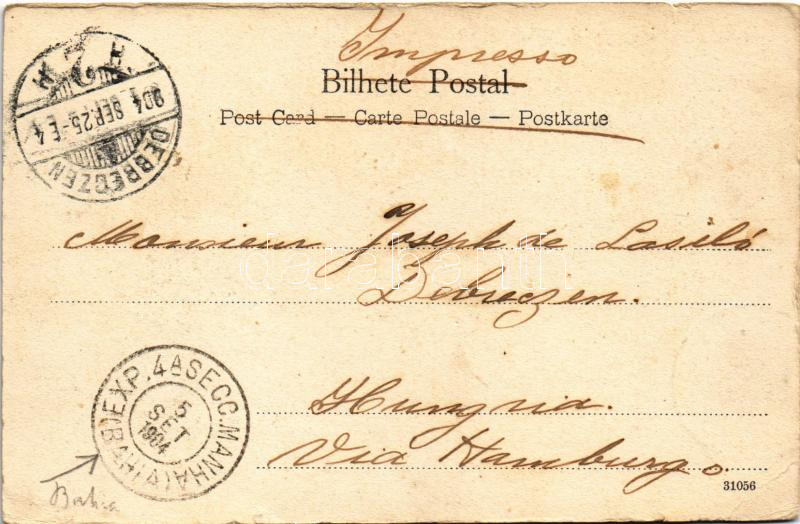 Impresso
Bilhete Postal
Post Card — Carte Postale — Postkarte
DEBRECZEN
904 SEP. 25-E.4
Monsieur Joseph de László
Debreczen.
Hungria.
Via Hamburgo.
EXP. 4ª SECC. MANHÃ (BAHIA)
5
SET
1904
Bahia
31056
darabanth